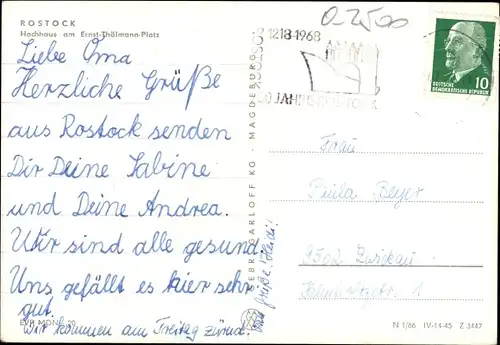 ROSTOCK
Hochhaus am Ernst-Thälmann-Platz
Liebe Oma
Herzliche Grüße
aus Rostock senden
Dir Deine Sabine
und Deine Andrea.
Wir sind alle gesund.
Uns gefällt es hier sehr
gut.
Wir kommen am Freitag zurück.
EVP MDN 0,20
GEBR. GARLOFF KG · MAGDEBURG
1218-1968
ROSTOCK
DEUTSCHE
DEMOKRATISCHE REPUBLIK
10
Frau
Paula Beyer
9502 Zwickau
N 1/66 IV-14-45 Z 3447